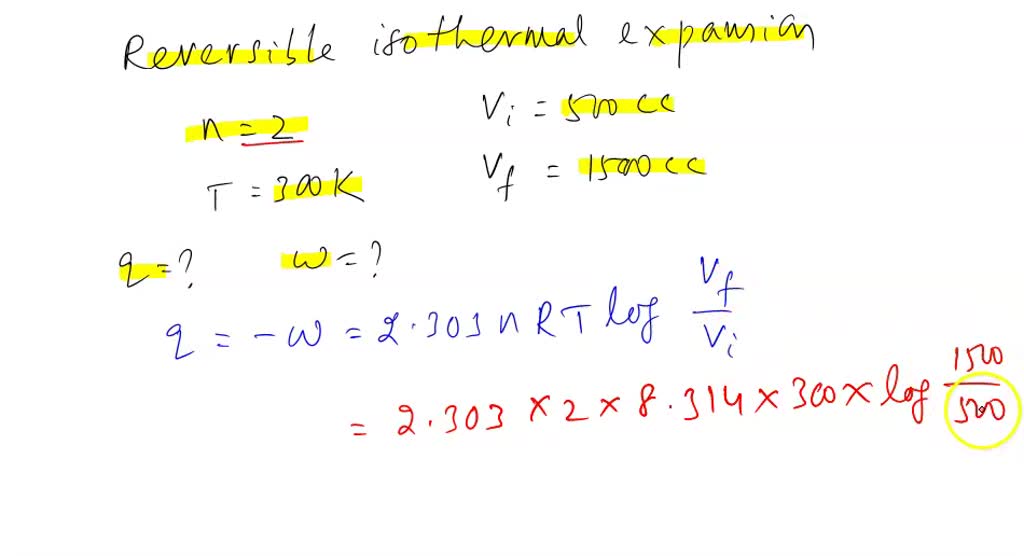 Reversible isothermal expansion
n = 2 Vi = 500 cc
T = 300K Vf = 1500 cc
q = ? w = ?
q = - w = 2.303 n R T log Vf/Vi
= 2.303 × 2 × 8.314 × 300 × log 1500/500